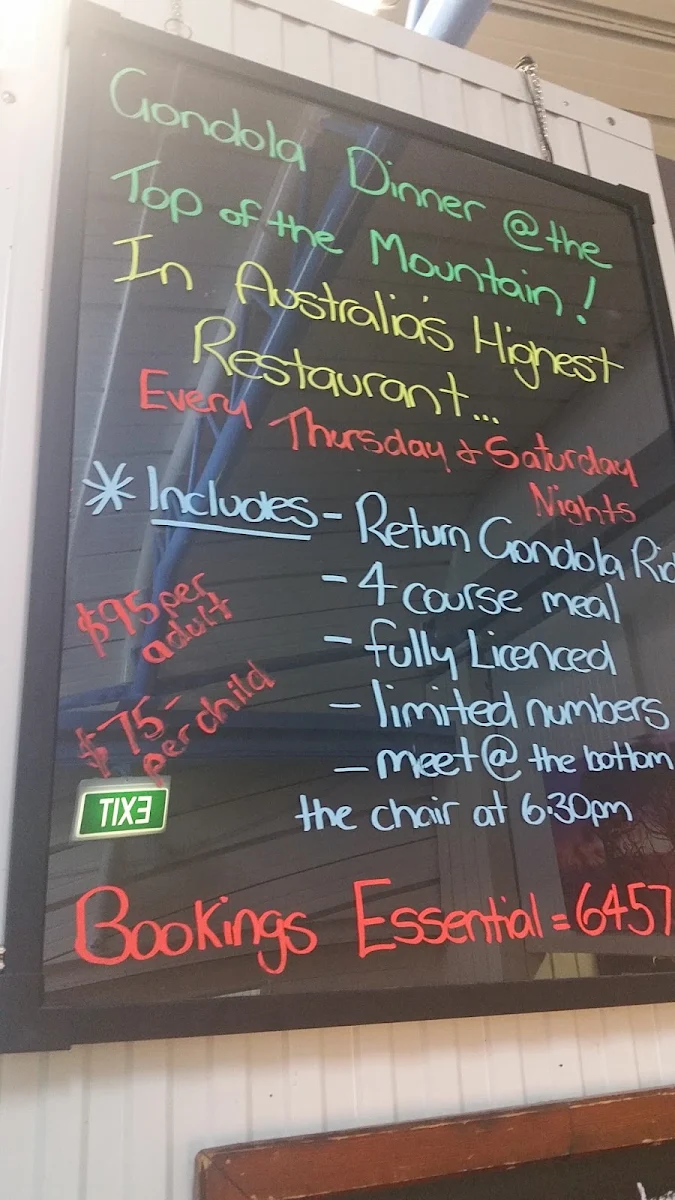 Gondola Dinner @ the
Top of the Mountain!
In Australia's Highest
Restaurant...
Every Thursday & Saturday
Nights
* Includes - Return Gondola Rid
- 4 course meal
- fully Licenced
- limited numbers
- meet @ the bottom
the chair at 6:30pm
$95 per
adult
$75-
per child
EXIT
Bookings Essential = 6457